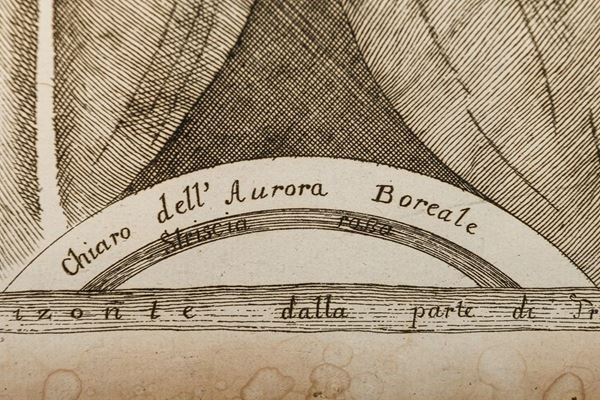 Chiaro dell' Aurora Boreale
Striscia rossa
izonte dalla parte di Tr